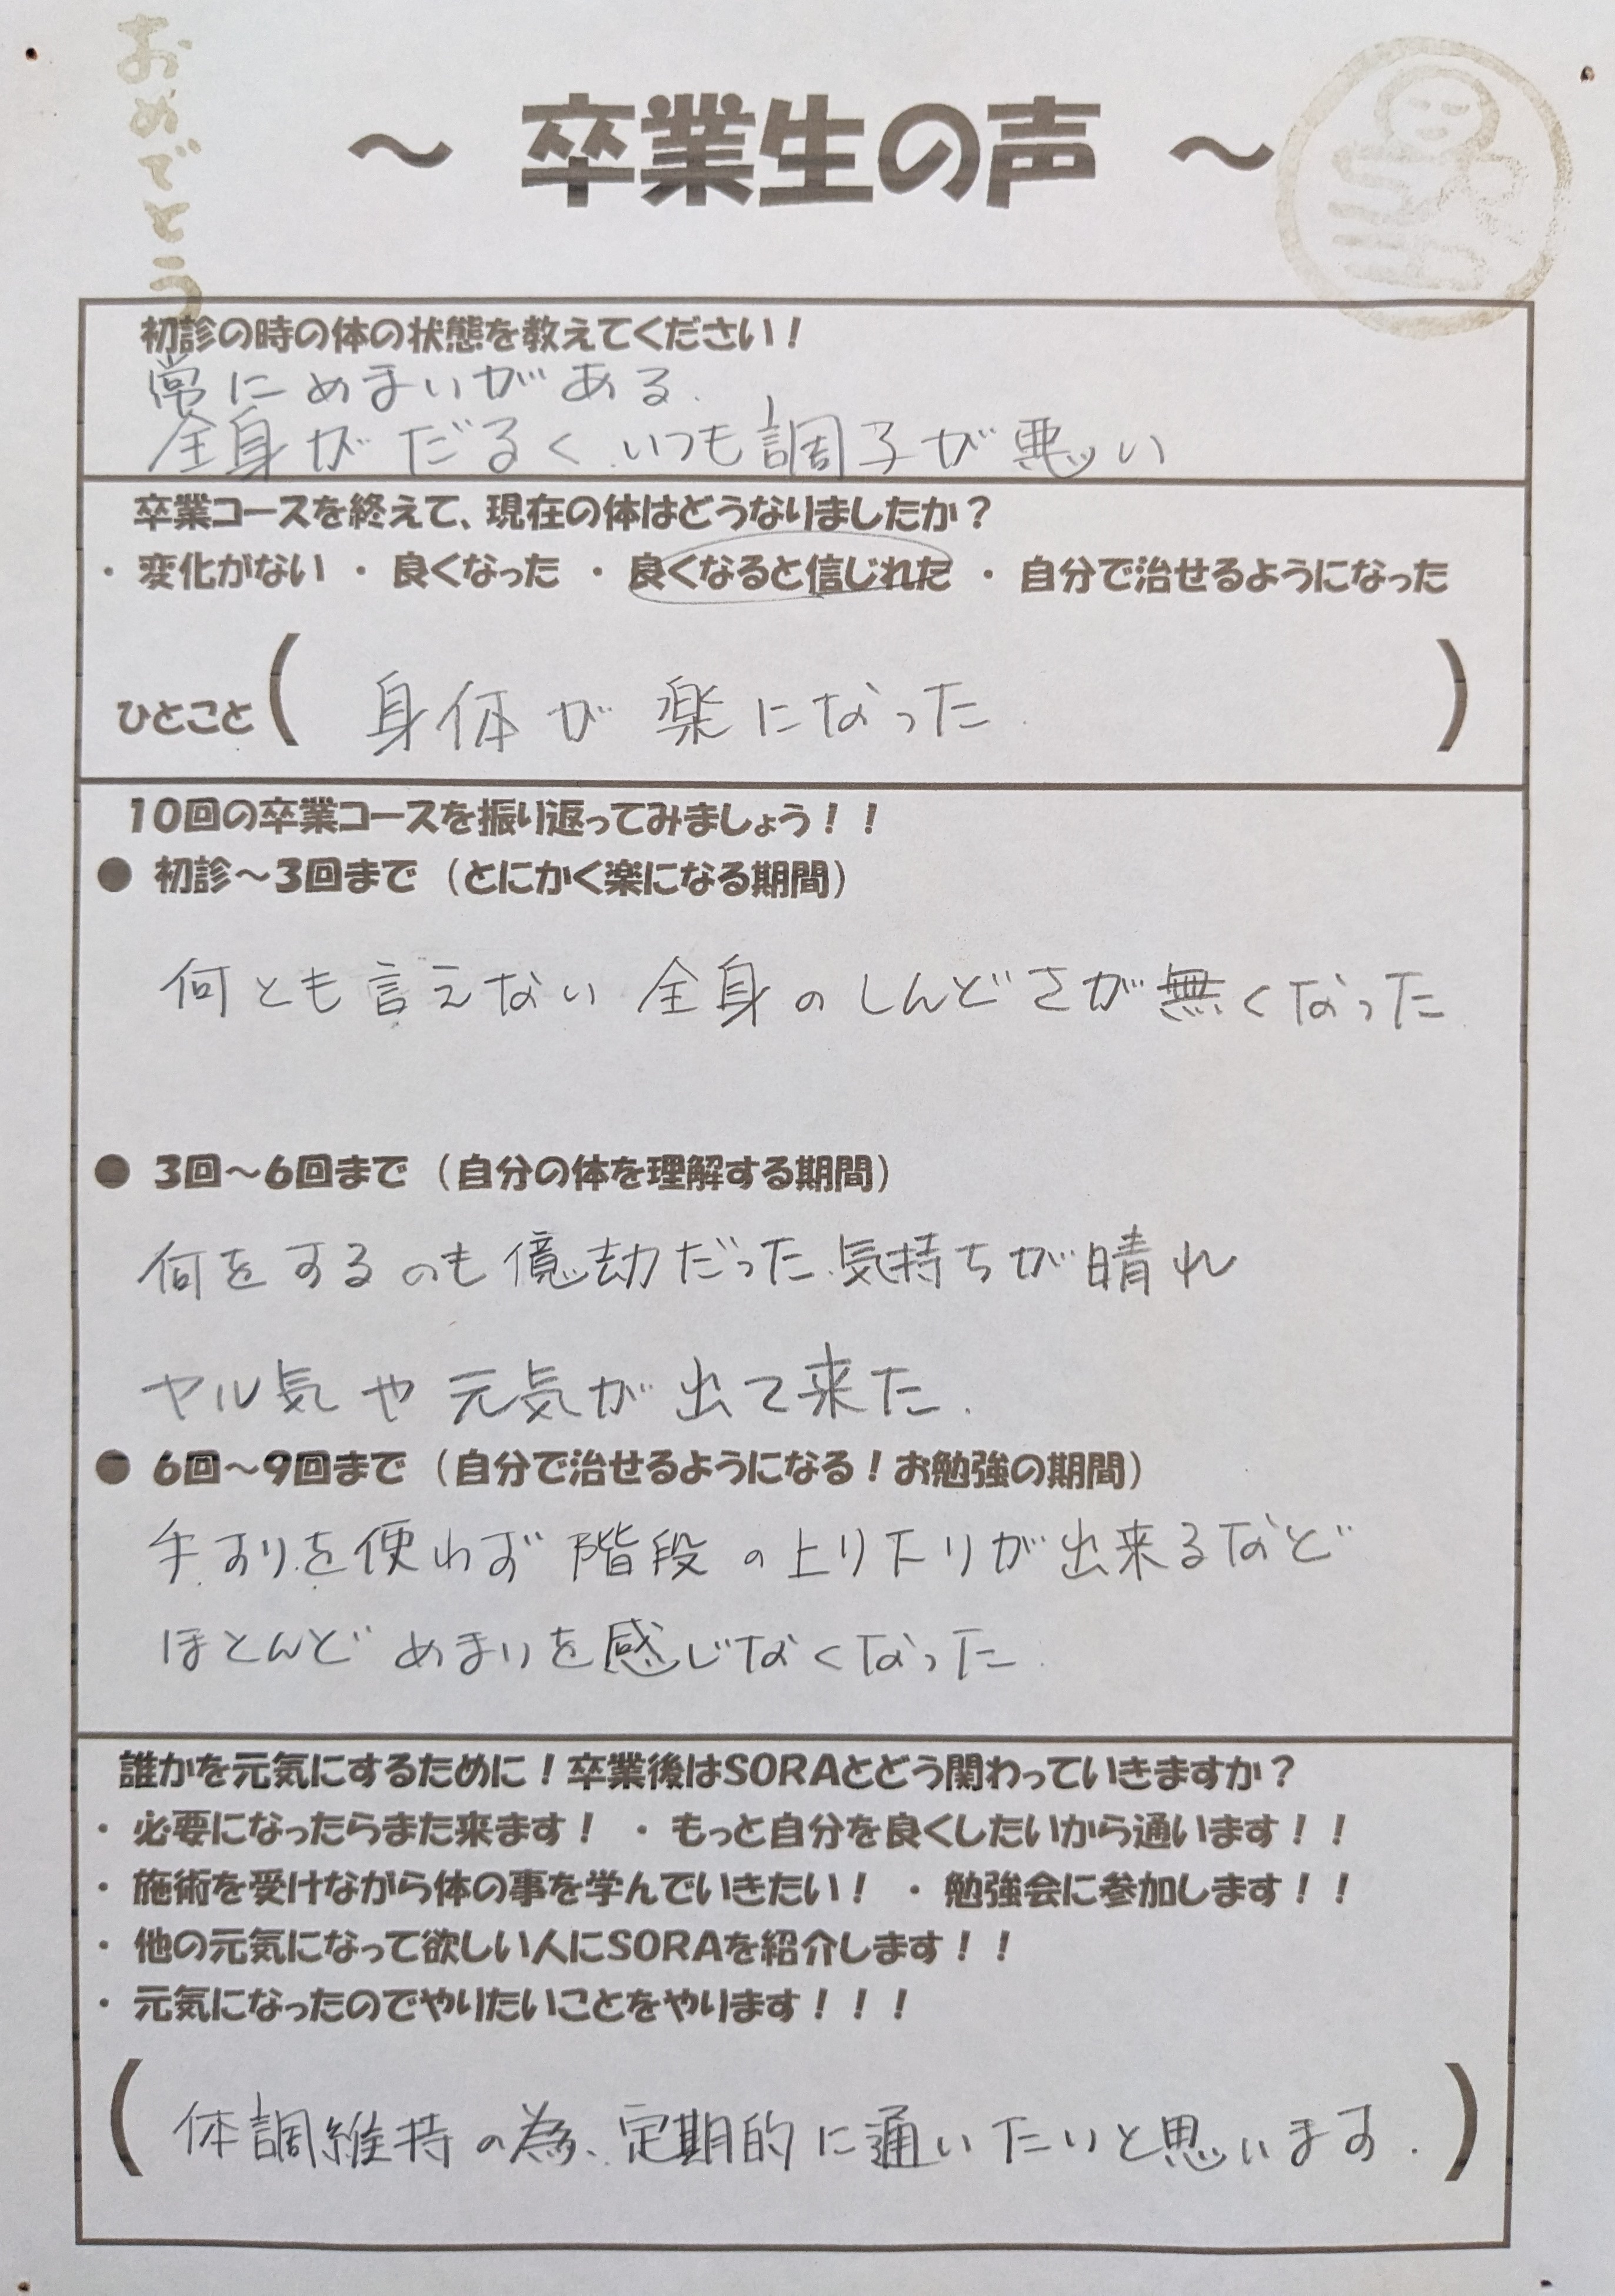 おめでとう
～ 卒業生の声 ～
初診の時の体の状態を教えてください！
常にめまいがある.
全身がだるく.いつも調子が悪い
卒業コースを終えて、現在の体はどうなりましたか？
・ 変化がない ・ 良くなった ・ 良くなると信じれた ・ 自分で治せるようになった
ひとこと ( 身体が楽になった. )
10回の卒業コースを振り返ってみましょう！！
● 初診～3回まで（とにかく楽になる期間）
何とも言えない 全身のしんどさが無くなった
● 3回～6回まで（自分の体を理解する期間）
何をするのも億劫だった.気持ちが晴れ
ヤル気や元気が出て来た.
● 6回～9回まで（自分で治せるようになる！お勉強の期間）
手すりを使わず階段の上り下りが出来るなど
ほとんどめまいを感じなくなった.
誰かを元気にするために！卒業後はSORAとどう関わっていきますか？
・ 必要になったらまた来ます！ ・ もっと自分を良くしたいから通います！！
・ 施術を受けながら体の事を学んでいきたい！ ・ 勉強会に参加します！！
・ 他の元気になって欲しい人にSORAを紹介します！！
・ 元気になったのでやりたいことをやります！！！
( 体調維持の為、定期的に通いたいと思います. )